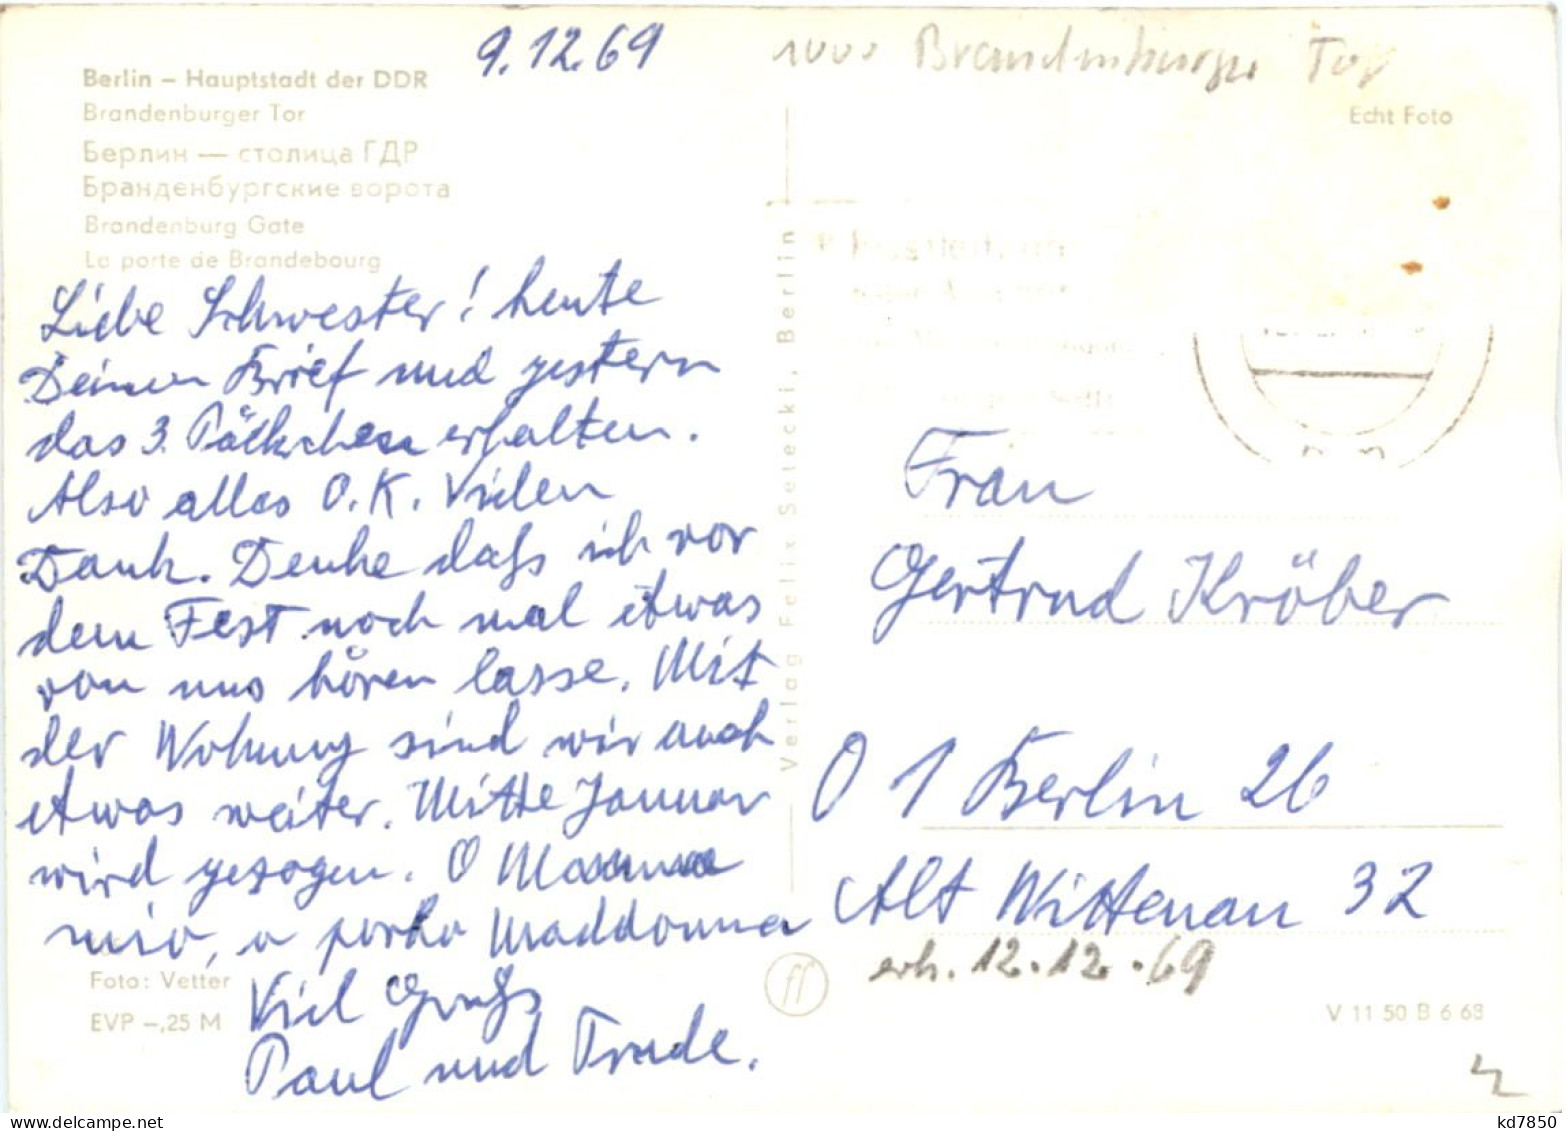 9.12.69
1000 Brandenburger Tor
Berlin – Hauptstadt der DDR
Brandenburger Tor
Берлин — столица ГДР
Бранденбургские ворота
Brandenburg Gate
La porte de Brandebourg
Echt Foto
Liebe Schwester! heute
Deinen Brief und gestern
das 3. Päckchen erhalten.
Also alles O.K. Vielen
Dank. Denke daß ich vor
dem Fest noch mal etwas
von uns hören lasse. Mit
der Wohnung sind wir auch
etwas weiter. Mitte Januar
wird gezogen. O Mamma
mio, o porko Maddonna
Viel Gruß
Paul und Trude.
Foto: Vetter
EVP –,25 M
Verlag Felix Setecki, Berlin
Frau
Gertrud Kröber
O 1 Berlin 26
Alt Wittenau 32
erh. 12.12.69
ff
V 11 50 B 6 68
kd7850